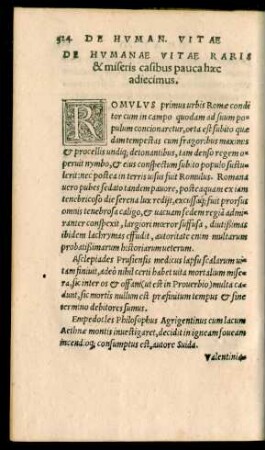 524 DE HVMAN. VITAE
DE HVMANAE VITAE RARIS
& miseris casibus pauca hæc
adiecimus.
ROMVLVS primus urbis Romæ condi
tor cum in campo quodam ad suum po
pulum concionaretur, orta est subito quæ
dam tempestas cum fragoribus maximis
& procellis undiq; detonantibus, tam denso regem o-
peruit nymbo, & eius conspectum subito populo sustu-
lerit: nec postea in terris usus fuit Romulus. Romana
uero pubes sedato tandem pauore, postea quam ex tam
tenebricoso die serena lux redijt, excussisq; fuit prorsus
omnis tenebrosa caligo, & uacuam sedem regiã admi-
ranter conspexit, largiori mœror suffusa, diutissimas
ibidem lachrymas effudit, autoritate enim multarum
probatissimarum historiarum ueterum.
Asclepiades Prusiensis medicus lapsu scalarum ui-
tam finiuit, adeò nihil certi habet uita mortalium mise-
ra, sic inter os & offam (ut est in Prouerbio) multa ca-
dunt, sic mortis nullum est præfinitum tempus & sine
termino debitores sumus.
Empedocles Philosophus Agrigentinus cum lacum
Aethnæ montis inuestigaret, decidit in igneam foueam
incendioq; consumptus est, autore Suida.
Valentinia-